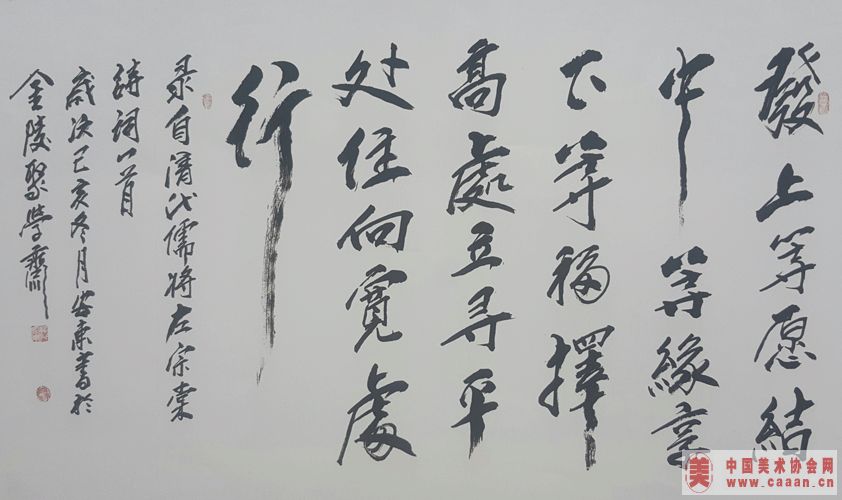 發上等愿結
中等緣享
下等福擇
高處立寻平
处住向寬處
行
录自清代儒将左宗棠
诗词一首
歲次己亥冬月安東書於
金陵聚學齋
中国美术协会网
www.caaan.cn